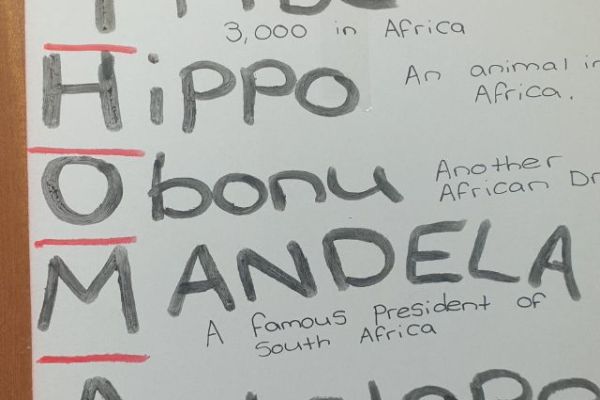 3,000 in Africa
Hippo
An animal in
Africa.
Obonu
Another
African Dr
MANDELA
A famous President of
South Africa